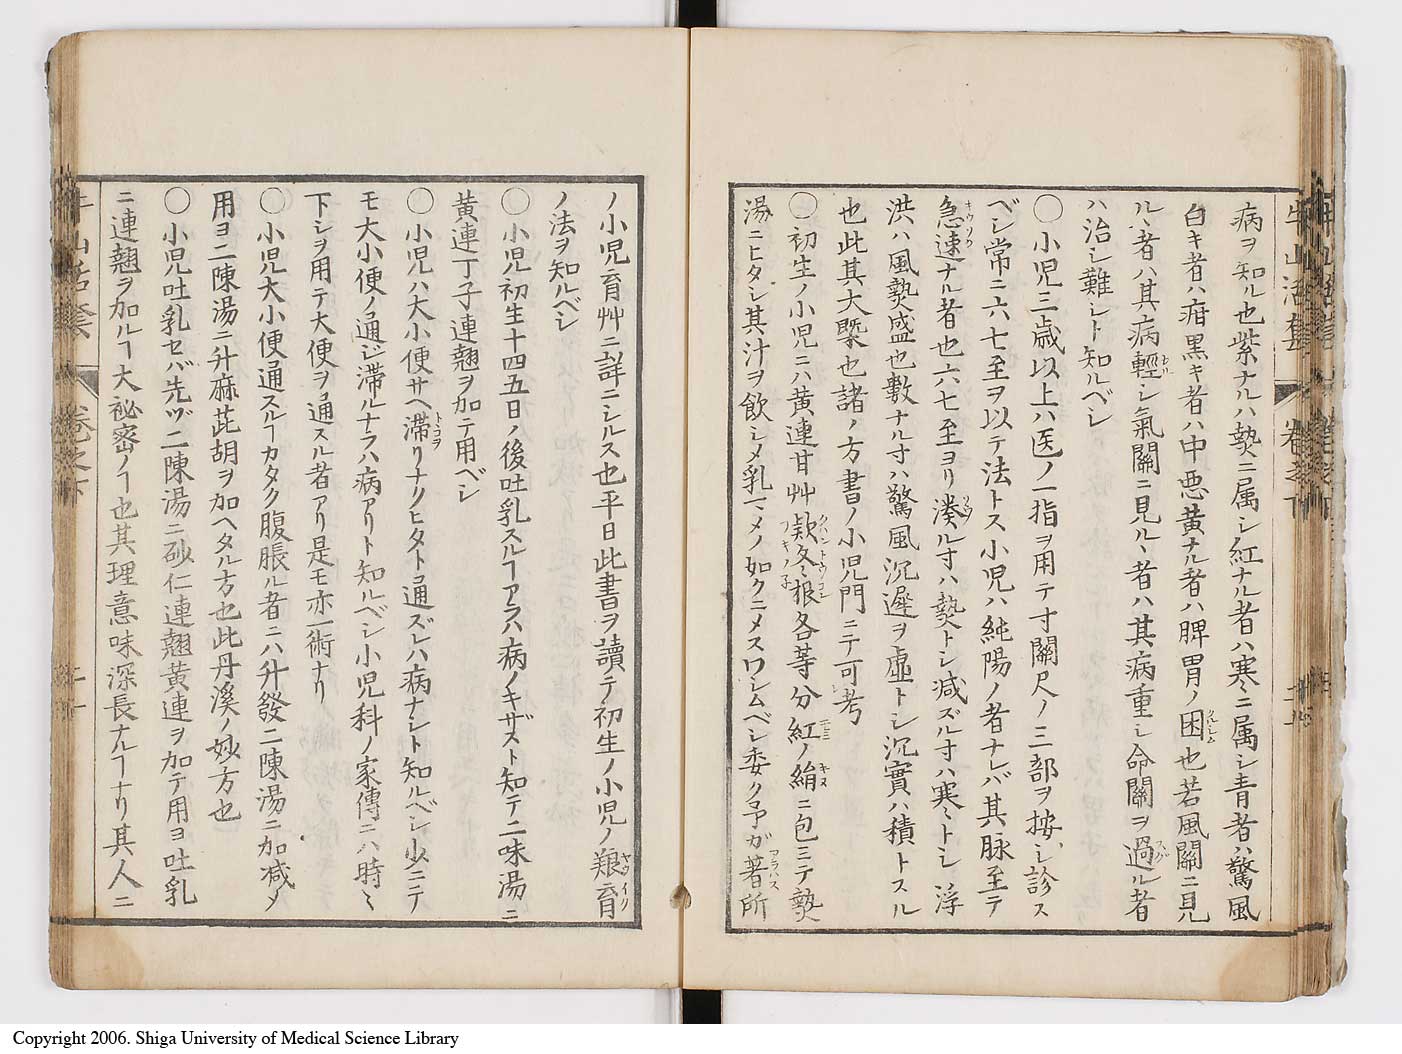 病ヲ知ル也紫ナルハ𤍠ニ属シ紅ナル者ハ寒ニ属シ青者ハ驚風
白キ者ハ疳黒キ者ハ中悪黄ナル者ハ脾胃ノ困也若風關ニ見
ル者ハ其病輕シ氣關ニ見ルヽ者ハ其病重シ命關ヲ過ル者
ハ治シ難シト知ルベシ
〇小児三歳以上ハ医ノ一指ヲ用テ寸關尺ノ三部ヲ按シ診ス
ベシ常ニ六七至ヲ以テ法トス小児ハ純陽ノ者ナレバ其脉至テ
急速ナル者也六七至ヨリ湊ル寸ハ𤍠トシ减ズル寸ハ寒トシ浮
洪ハ風𤍠盛也數ナル寸ハ驚風沉遲ヲ虚トシ沉實ハ積トスル
也此其大槩也諸ノ方書ノ小児門ニテ可考
〇初生ノ小児ニハ黄連甘艸欵冬根各等分紅ノ絹ニ包ミテ𤍠
湯ニヒタシ其汁ヲ飲シメ乳マメノ如クニメスワシムベシ委ク予ガ著所
牛山活套 卷之下
ノ小児育艸ニ詳ニシルス也平日此書ヲ讀テ初生ノ小児ノ艱育
ノ法ヲ知ルベシ
〇小児初生十四五日ノ後吐乳スルヿアラハ病ノキザスト知テ二味湯ニ
黄連丁子連翹ヲ加テ用ベシ
〇小児ハ大小便サヘ滞リナクヒタト通ズレハ病ナシト知ルベシ少ニテ
モ大小便ノ通ジ滞ルナラハ病アリト知ルベシ小児科ノ家傳ニハ時ミ
下シヲ用テ大便ヲ通スル者アリ是モ亦一術ナリ
〇小児大小便通スルヿカタク腹脹ル者ニハ升發二陳湯ニ加减メ
用ヨ二陳湯ニ升麻茈胡ヲ加ヘタル方也此丹溪ノ妙方也
〇小児吐乳セバ先ヅ二陳湯ニ砂仁連翹黄連ヲ加テ用ヨ吐乳
ニ連翹ヲ加ルヿ大祕密ノヿ也其理意味深長ナルヿナリ其人ニ
牛山活套 卷之下
Copyright 2006. Shiga University of Medical Science Library